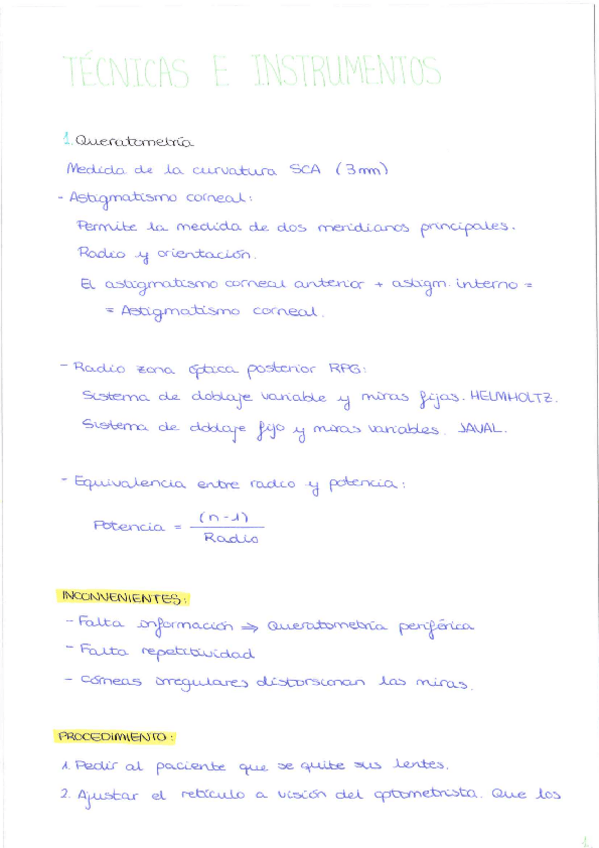 TÉCNICAS E INSTRUMENTOS
1. Queratometría
Medida de la curvatura SCA (3mm)
- Astigmatismo corneal:
Permite la medida de dos meridianos principales.
Radio y orientación.
El astigmatismo corneal anterior + astigm. interno =
= Astigmatismo corneal.
- Radio zona óptica posterior RPG:
Sistema de doblaje variable y miras fijas. HELMHOLTZ.
Sistema de doblaje fijo y miras variables. JAVAL.
- Equivalencia entre radio y potencia:
Potencia = (n-1) / Radio
INCONVENIENTES:
- Falta información ⇒ Queratometría periférica
- Falta repetitividad
- Córneas irregulares distorsionan las miras.
PROCEDIMIENTO:
1. Pedir al paciente que se quite sus lentes.
2. Ajustar el retículo a visión del optometrista. Que los
1.